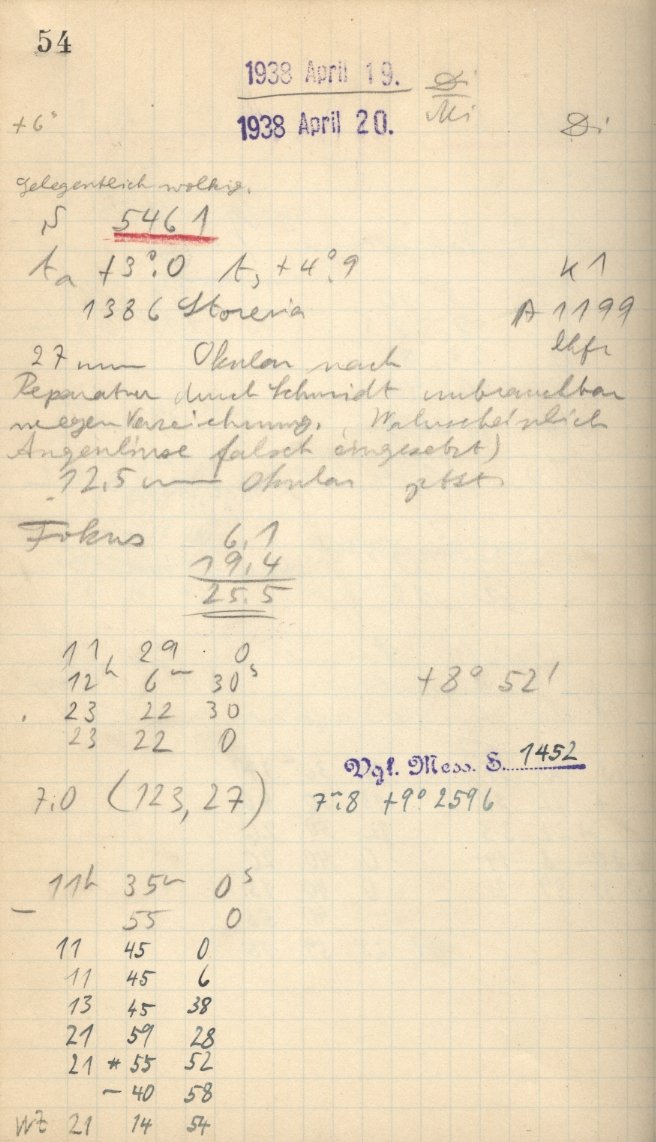 54
1938 April 19. Di
1938 April 20. Mi
+6ˢ Di
gelegentlich wolkig.
N 5461
tₐ +3°.0 t₃ +4°.9 K1
1386 Storeria A1199
27 mm Okular nach
Reparatur durch Schmidt unbrauchbar
wegen Verzeichnung. Wahrscheinlich
Augenlinse falsch eingesetzt)
12,5 mm Okular jetzt
Fokus 6.1
19.4
25.5
11 29 0
12ʰ 6ᵐ 30ˢ +8° 52'
23 22 30
23 22 0
Vgl. Mess. S. 1452
7.0 (123,27) 7ᵐ.8 +9° 2596
11ʰ 35ᵐ 0ˢ
— 55 0
11 45 0
11 45 6
13 45 38
21 59 28
21 * 55 52
– 40 58
WZ 21 14 54